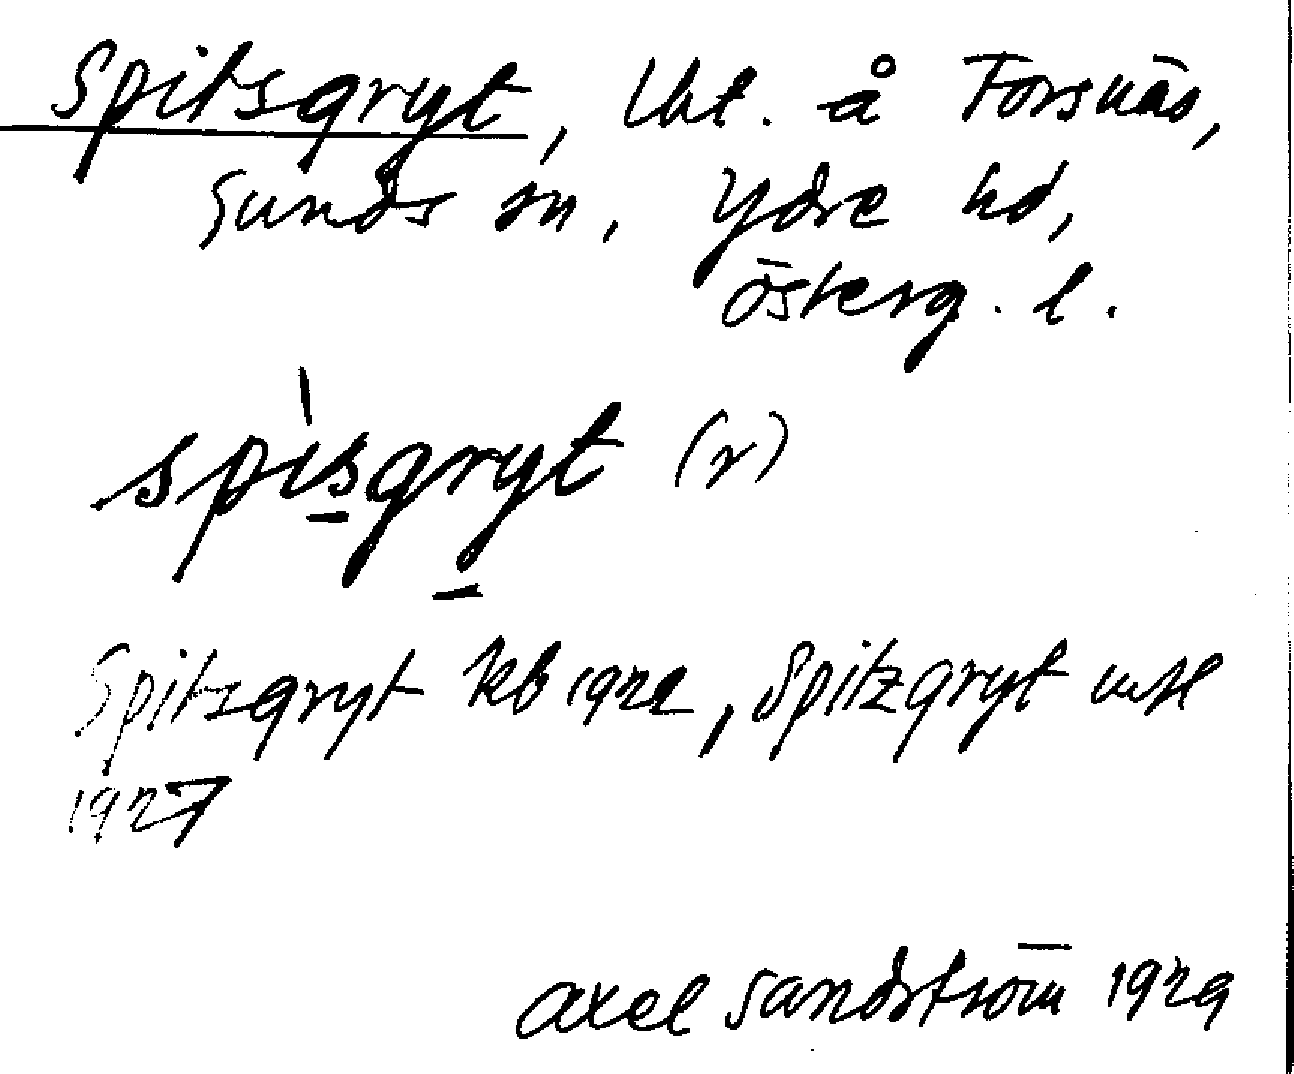 Spitsgryt, lht. å Forsnäs,
Sunds sn, Ydre hd,
Österg. l.
spìsgryt (r)
Spitsgryt kb 1922, Spitzgryt
1927
Axel Sandström 1929